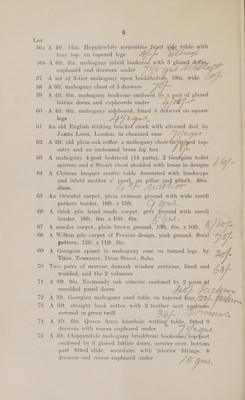 6
Lot
56A A 4ft. 13in. Hepplewhite serpentine front side table with
tray top, on tapered legs
56B A 6ft. 3in. mahogany inlaid bookcase with 3 glazed doors,
cupboard and drawers under
57 A set of 3-tier mahogany open bookshelves, 19in. wide
58 A 3ft. mahogany chest of 5 drawers
59 A 4ft. 6in. mahogany bookcase enclosed by a pair of glazed
lattice doors and cupboards under
60 A 4ft. 6in. mahogany sideboard, fitted 3 drawers on square
legs
61 An old English striking bracket clock with silvered dial, by
James Long, London, in ebonised case
62 A 3ft. old plain oak coffer, a mahogany chair on striped tap-
estry and an embossed brass log box
63 A mahogany 4-post bedstead (14 parts), 2 Georgian toilet
mirrors and a Stuart chest studded with brass in designs
64 A Chinese lacquer centre table decorated with landscape
and inlaid mother o' pearl, on pillar and plinth, 48in.
diam.
65 An Oriental carpet, plain crimson ground with wide scroll
pattern border, 19ft. x 15ft.
66 A thick pile hand made carpet, grey ground with scroll
border, 16ft. 6in. x 10ft. 6in.
67 A similar carpet, plain brown ground, 13ft. 6in. x 10ft.
68 A Wilton pile carpet of Persian design, pink ground, floral
pattern, 12ft. x 11ft. 3in.
69 A Georgian spinet in mahogany case on turned legs, by
Thos. Tomkison, Dean Street, Soho
70 Two pairs of morone damask window curtains, lined and
wadded, and the 2 valances
71 A 3ft. 9in. Normandy oak armoire enclosed by 2 pairs of
moulded panel doors
72 A 3ft. Georgian mahogany card table on tapered legs
73 A 6ft. straight back settee with 2 feather seat cushions
covered in green twill
74 A 4ft. 6in. Queen Anne kneehole writing table, fitted 9
drawers with recess cupboard under
75 A 4ft. Chippendale mahogany breakfront bookcase, top part
enclosed by 3 glazed lattice doors, serrate over, bottom
part fitted slide, secretaire with interior fittings, 8
drawers and recess cupboard under